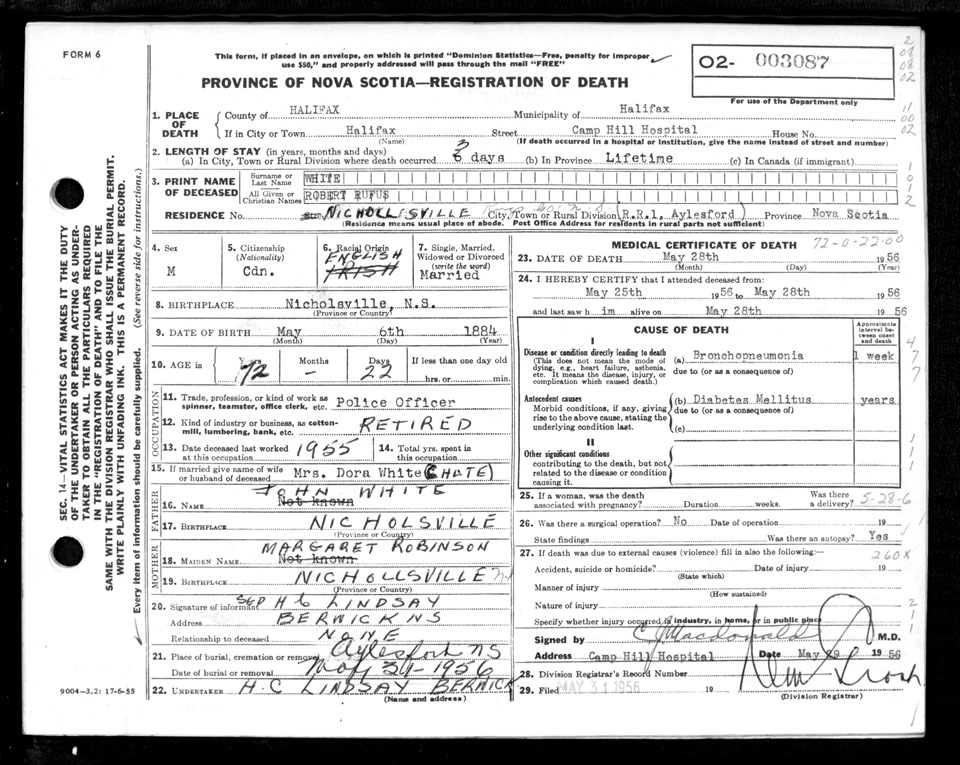 FORM 6
This form, if placed in an envelope, on which is printed "Dominion Statistics—Free, penalty for improper
use $50," and properly addressed will pass through the mail "FREE"
PROVINCE OF NOVA SCOTIA—REGISTRATION OF DEATH
02- 003087
For use of the Department only
1. PLACE OF DEATH
County of HALIFAX Municipality of Halifax
If in City or Town Halifax Street Camp Hill Hospital House No.
(Name) (If death occurred in a hospital or institution, give the name instead of street and number)
2. LENGTH OF STAY (in years, months and days)
(a) In City, Town or Rural Division where death occurred 3 days (b) In Province Lifetime (c) In Canada (if immigrant)
3. PRINT NAME OF DECEASED
Surname or Last Name WHITE
All Given or Christian Names ROBERT RUFUS
RESIDENCE No. NICHOLLSVILLE City, Town or Rural Division (R.R.1, Aylesford) Province Nova Scotia
(Residence means usual place of abode. Post Office Address for residents in rural parts not sufficient)
4. Sex
M
5. Citizenship
(Nationality)
Cdn.
6. Racial Origin
ENGLISH
IRISH
7. Single, Married,
Widowed or Divorced
(write the word)
Married
8. BIRTHPLACE Nicholsville, N.S.
(Province or Country)
9. DATE OF BIRTH May 6th 1884
(Month) (Day) (Year)
10. AGE in Years Months Days If less than one day old
72 - 22 hrs. or min.
OCCUPATION
11. Trade, profession, or kind of work as
spinner, teamster, office clerk, etc. Police Officer
12. Kind of industry or business, as cotton-
mill, lumbering, bank, etc. RETIRED
13. Date deceased last worked
at this occupation 1955
14. Total yrs. spent in
this occupation
15. If married give name of wife
or husband of deceased Mrs. Dora White (CHUTE)
FATHER
JOHN WHITE
16. NAME Not known
17. BIRTHPLACE NICHOLSVILLE
(Province or Country)
MOTHER
MARGARET ROBINSON
18. MAIDEN NAME Not known
19. BIRTHPLACE NICHOLLSVILLE
(Province or Country)
20. Signature of informant SGD H C LINDSAY
Address BERWICK NS
Relationship to deceased NONE
21. Place of burial, cremation or removal Aylesford NS
Date of burial or removal May 31-1956
22. UNDERTAKER H.C LINDSAY BERWICK
(Name and address)
MEDICAL CERTIFICATE OF DEATH 72-0-22-00
23. DATE OF DEATH May 28th 1956
(Month) (Day) (Year)
24. I HEREBY CERTIFY that I attended deceased from:
May 25th 1956 to May 28th 1956
and last saw h im alive on May 28th 1956
CAUSE OF DEATH
Approximate
interval be-
tween onset
and death
I
Disease or condition directly leading to death
(This does not mean the mode of
dying, e.g., heart failure, asthenia,
etc. It means the disease, injury, or
complication which caused death.)
(a) Bronchopneumonia 1 week
due to (or as a consequence of)
Antecedent causes
Morbid conditions, if any, giving
rise to the above cause, stating the
underlying condition last.
(b) Diabetes Mellitus years
due to (or as a consequence of)
(c)
II
Other significant conditions
contributing to the death, but not
related to the disease or condition
causing it.
25. If a woman, was the death
associated with pregnancy? Duration weeks. Was there
a delivery? 5-28-6
26. Was there a surgical operation? No Date of operation 19
State findings Was there an autopsy? Yes
27. If death was due to external causes (violence) fill in also the following: 260X
Accident, suicide or homicide? Date of injury 19
(State which)
Manner of injury
(How sustained)
Nature of injury
Specify whether injury occurred in industry, in home, or in public place
Signed by C Macdonald M.D.
Address Camp Hill Hospital Date May 29 1956
28. Division Registrar's Record Number
29. Filed MAY 31 1956 19
(Division Registrar)
SEC. 14—VITAL STATISTICS ACT MAKES IT THE DUTY
OF THE UNDERTAKER OR PERSON ACTING AS UNDER-
TAKER TO OBTAIN ALL THE PARTICULARS REQUIRED
IN THE "REGISTRATION OF DEATH" AND TO FILE THE
SAME WITH THE DIVISION REGISTRAR WHO SHALL ISSUE THE BURIAL PERMIT.
WRITE PLAINLY WITH UNFADING INK. THIS IS A PERMANENT RECORD.
Every item of information should be carefully supplied. (See reverse side for instructions.)
9004—3.2: 17-6-55